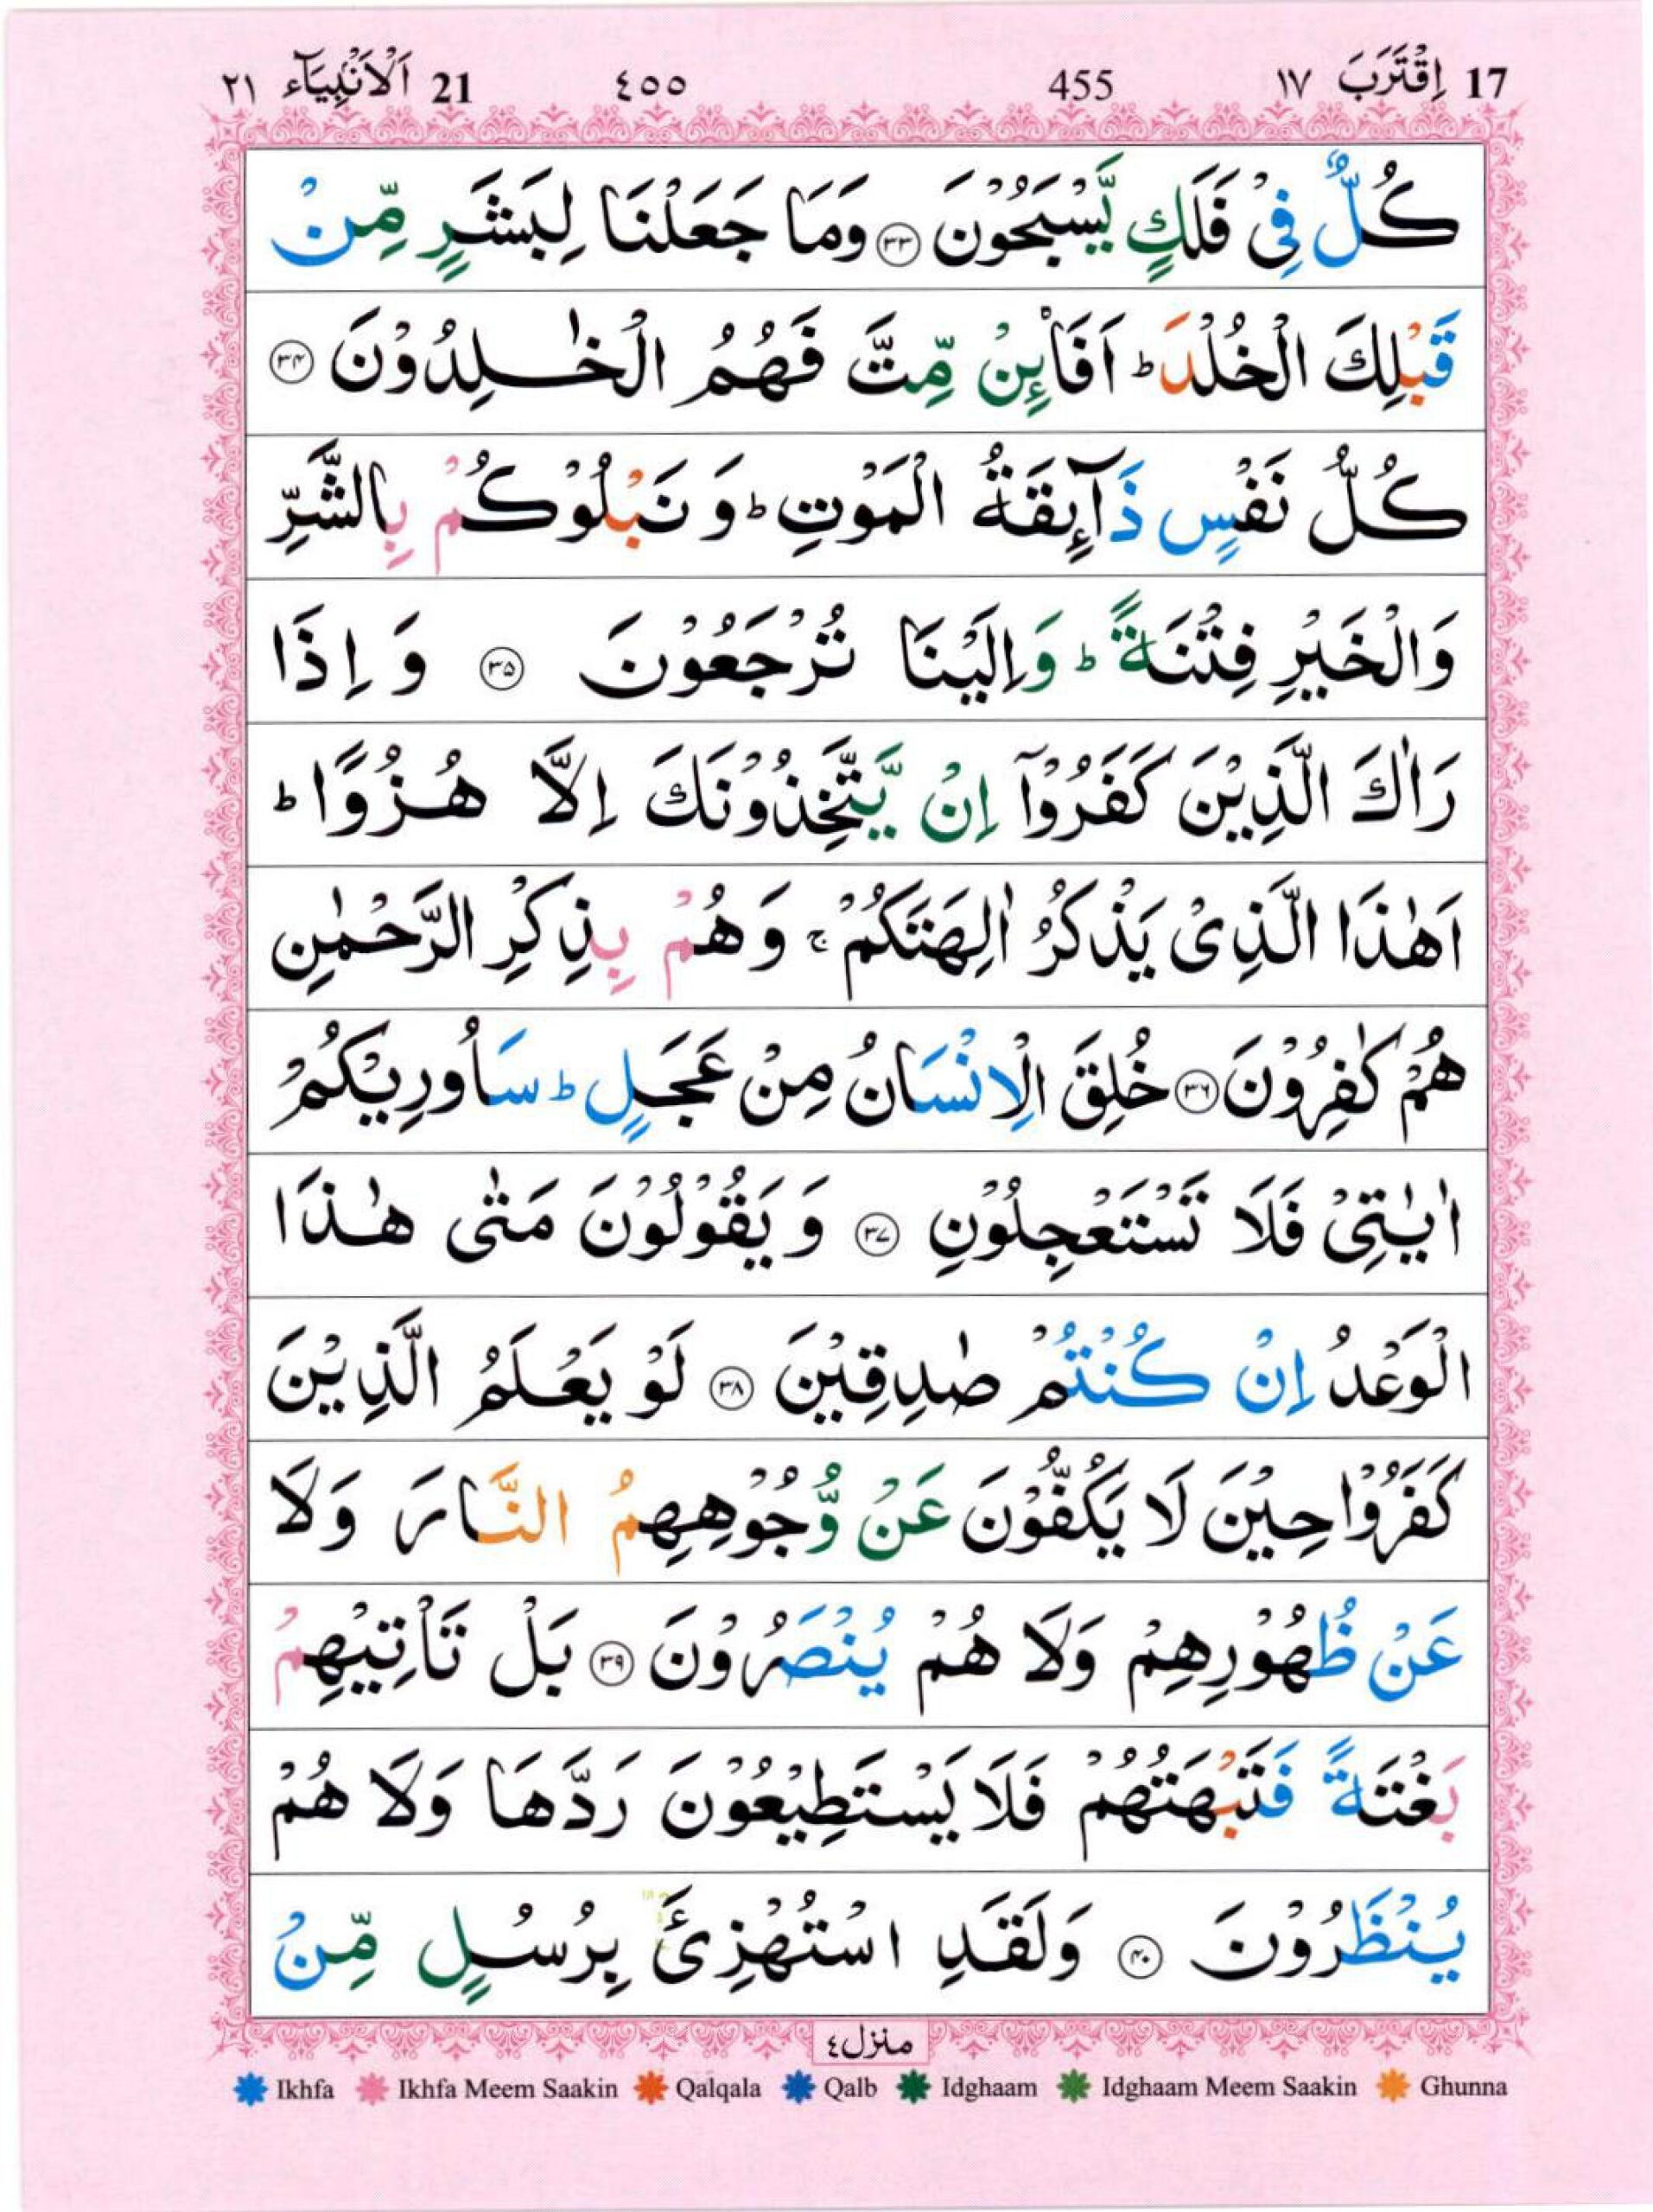 17 اِقْتَرَبَ ١٧ 455 ٤٥٥ 21 اَلْاَنْۢبِيَآء ٢١
كُلٌّ فِيْ فَلَكٍ يَّسْبَحُوْنَ ۝٣٣ وَمَا جَعَلْنَا لِبَشَرٍ مِّنْ
قَبْلِكَ الْخُلْدَ ؕ اَفَا۠ئِنْ مِّتَّ فَهُمُ الْخٰلِدُوْنَ ۝٣٤
كُلُّ نَفْسٍ ذَآئِقَةُ الْمَوْتِ ؕ وَ نَبْلُوْكُمْ بِالشَّرِّ
وَالْخَيْرِ فِتْنَةً ؕ وَاِلَيْنَا تُرْجَعُوْنَ ۝٣٥ وَ اِذَا
رَاٰكَ الَّذِيْنَ كَفَرُوْۤا اِنْ يَّتَّخِذُوْنَكَ اِلَّا هُزُوًا ؕ
اَهٰذَا الَّذِيْ يَذْكُرُ اٰلِهَتَكُمْ ۚ وَهُمْ بِذِكْرِ الرَّحْمٰنِ
هُمْ كٰفِرُوْنَ ۝٣٦ خُلِقَ الْاِنْسَانُ مِنْ عَجَلٍ ؕ سَاُورِيْكُمْ
اٰيٰتِيْ فَلَا تَسْتَعْجِلُوْنِ ۝٣٧ وَ يَقُوْلُوْنَ مَتٰى هٰذَا
الْوَعْدُ اِنْ كُنْتُمْ صٰدِقِيْنَ ۝٣٨ لَوْ يَعْلَمُ الَّذِيْنَ
كَفَرُوْا حِيْنَ لَا يَكُفُّوْنَ عَنْ وُّجُوْهِهِمُ النَّارَ وَلَا
عَنْ ظُهُوْرِهِمْ وَلَا هُمْ يُنْصَرُوْنَ ۝٣٩ بَلْ تَاْتِيْهِمْ
بَغْتَةً فَتَبْهَتُهُمْ فَلَا يَسْتَطِيْعُوْنَ رَدَّهَا وَلَا هُمْ
يُنْظَرُوْنَ ۝٤٠ وَلَقَدِ اسْتُهْزِئَ بِرُسُلٍ مِّنْ
منزل ٤
Ikhfa Ikhfa Meem Saakin Qalqala Qalb Idghaam Idghaam Meem Saakin Ghunna